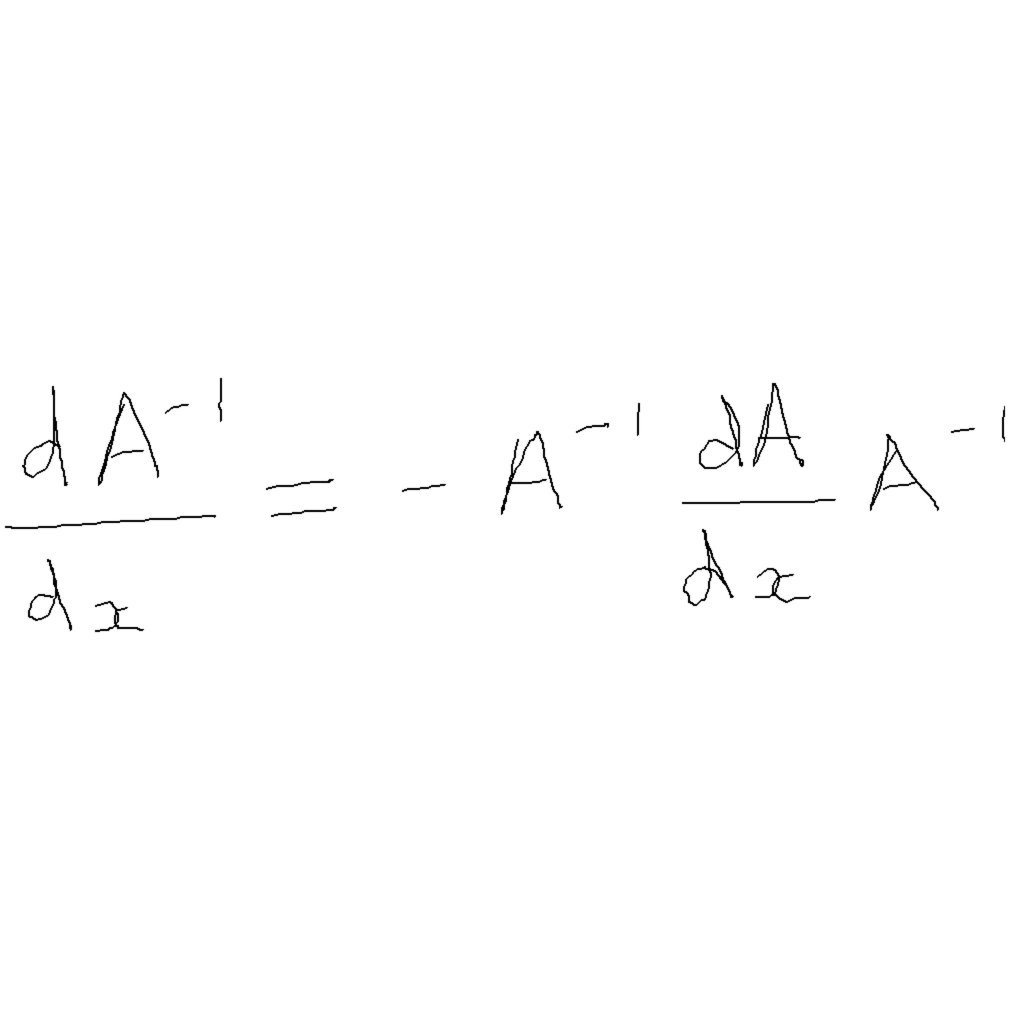 \frac{dA^{-1}}{dx} = -A^{-1} \frac{dA}{dx} A^{-1}